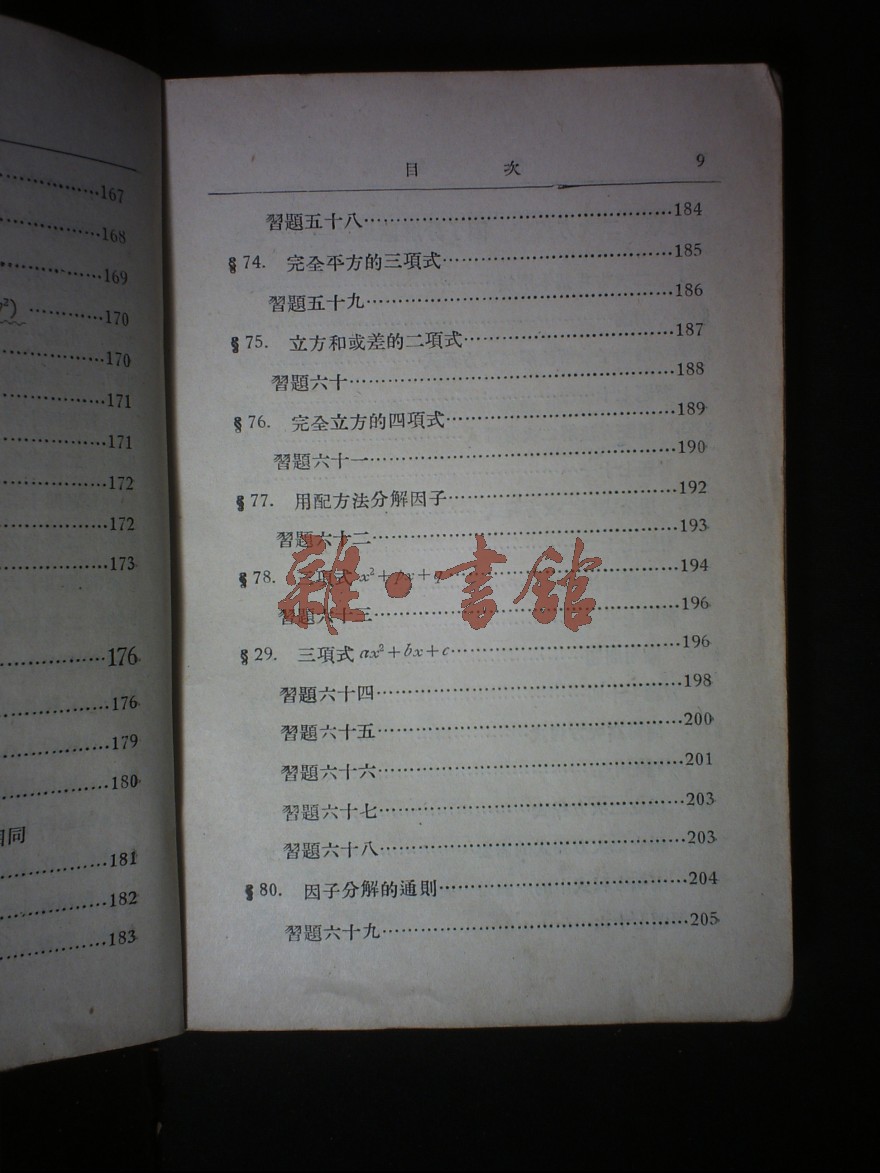 167
168
169
²) …………170
170
171
171
172
172
173
176
176
179
180
相同
181
182
183
目 次 9
習題五十八…………184
§74. 完全平方的三項式…………185
習題五十九…………186
§75. 立方和或差的二項式…………187
習題六十…………188
§76. 完全立方的四項式…………189
習題六十一…………190
§77. 用配方法分解因子…………192
習題六十二…………193
§78. 三項式 x²+px+q…………194
習題六十三…………196
§29. 三項式 ax²+bx+c…………196
習題六十四…………198
習題六十五…………200
習題六十六…………201
習題六十七…………203
習題六十八…………203
§80. 因子分解的通則…………204
習題六十九…………205
雜·書館